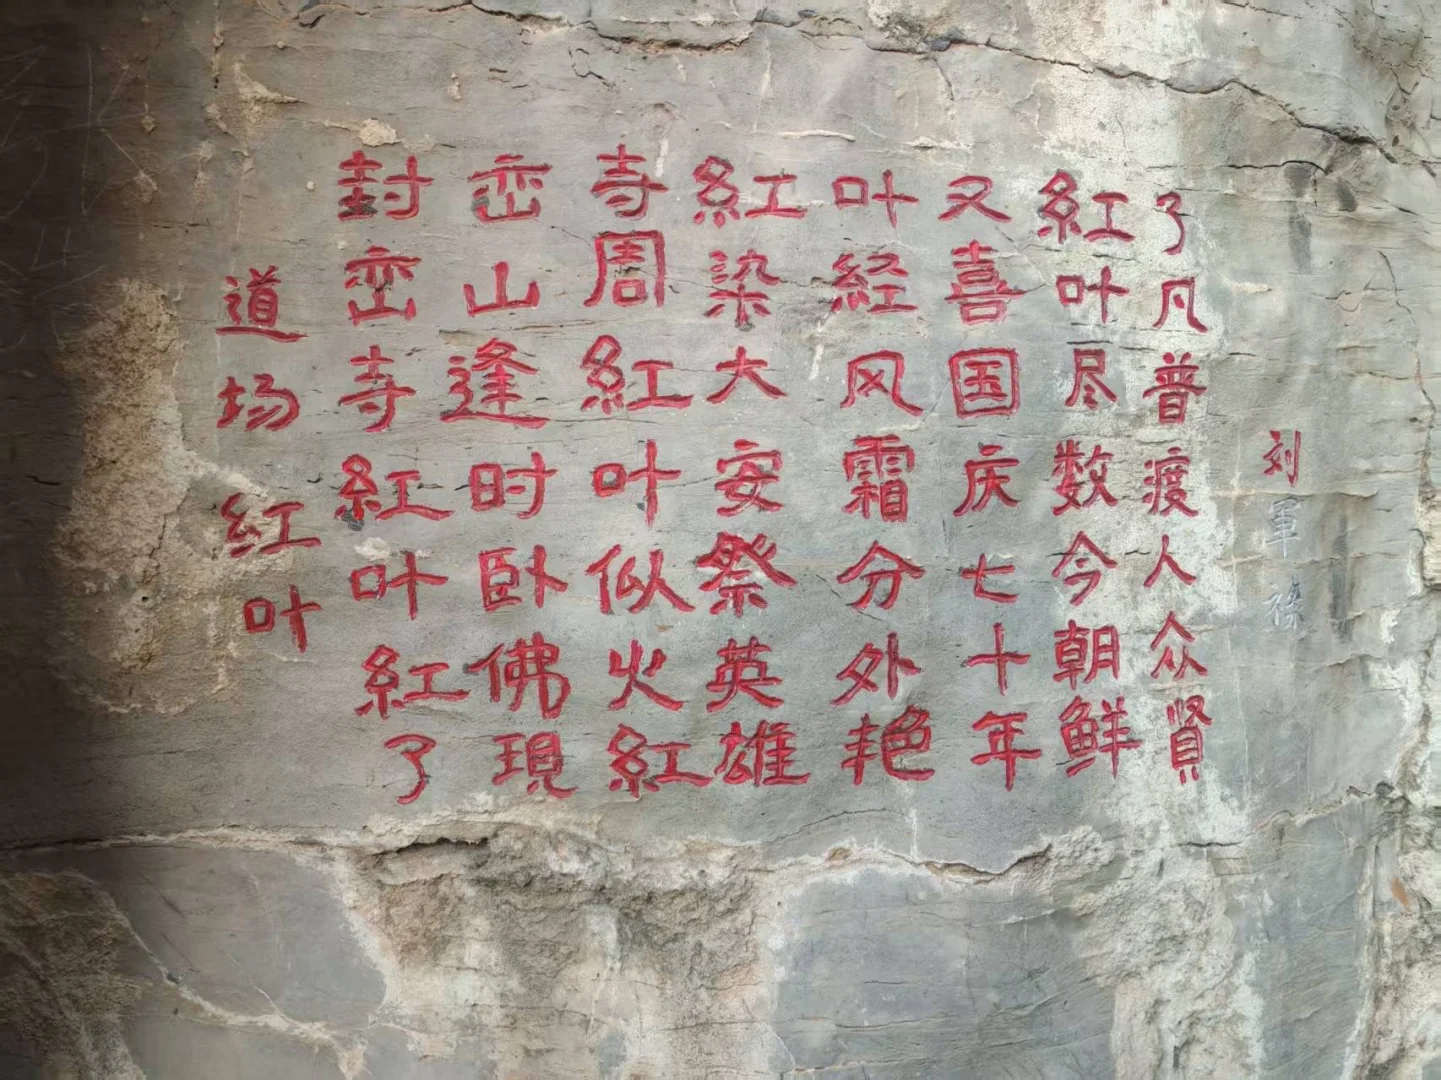 道场紅叶
封峦寺紅叶紅了
峦山逢时卧佛現
寺周紅叶似火紅
紅染大安祭英雄
叶経风霜分外艳
又喜国庆七十年
紅叶尽数今朝鲜
了凡普渡人众賢
刘軍